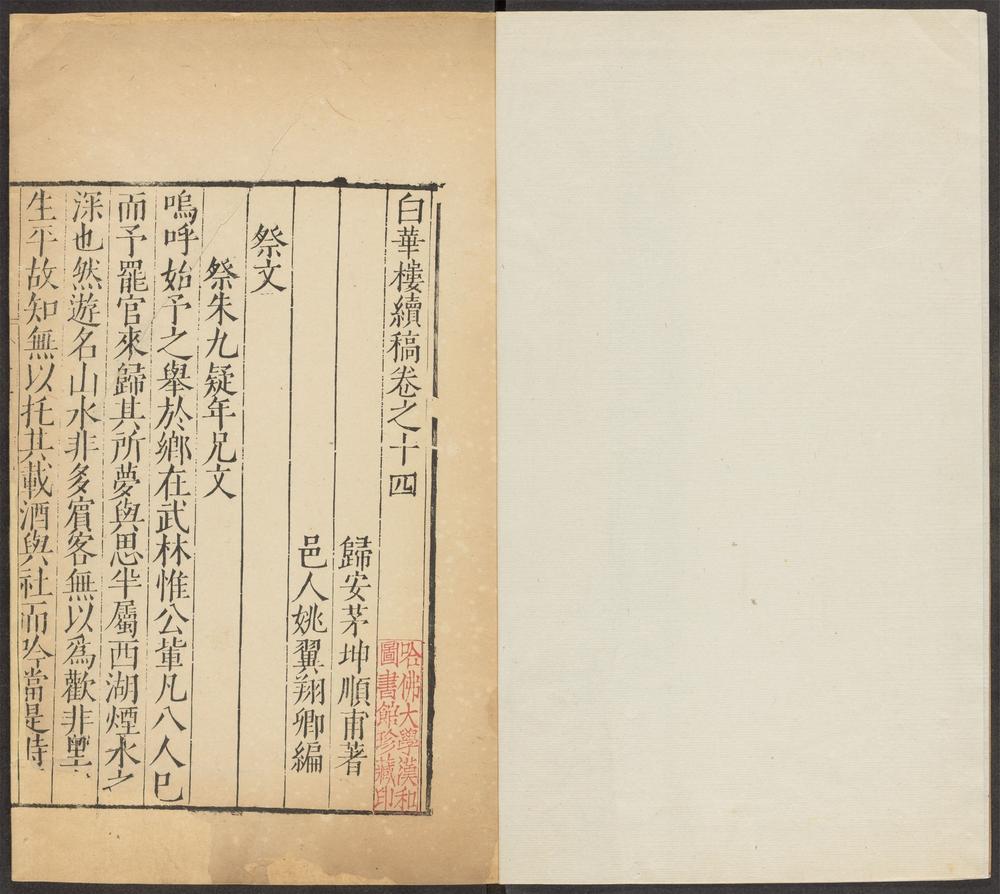 白華樓續稿卷之十四
歸安茅坤順甫著
邑人姚翼翔卿編
祭文
祭朱九疑年兄文
嗚呼始予之舉於鄉在武林惟公軰凡八人巳
而予罷官來歸其所夢與思半屬西湖煙水之
深也然遊名山水非多賔客無以爲歡非
生平故知無以托其載酒與社而吟當是時
哈佛大學漢和
圖書館珍藏印